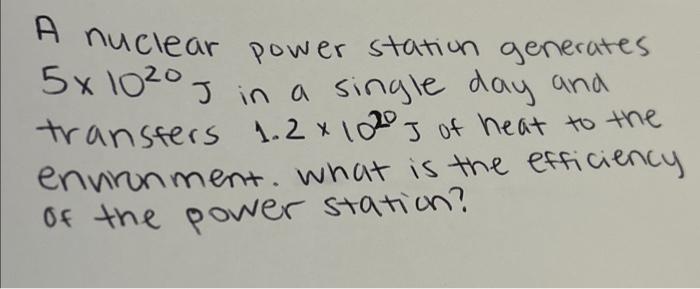 A nuclear power station generates
5x10²⁰ J in a single day and
transfers 1.2 x 10²⁰ J of heat to the
environment. what is the efficiency
of the power station?